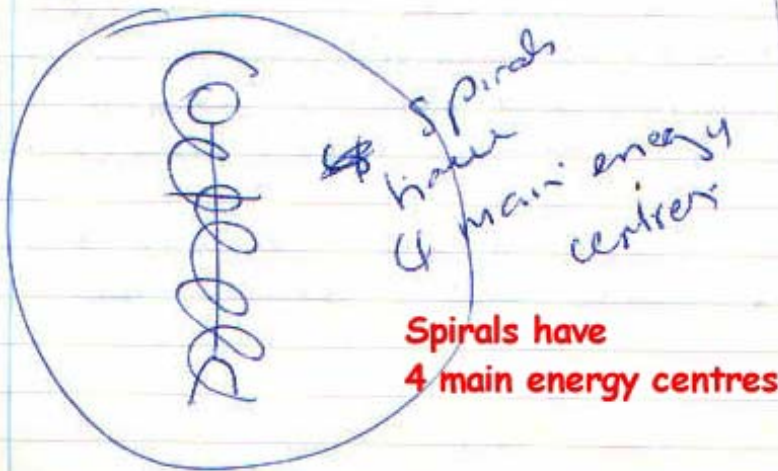 Spirals
have
4 main energy
centres
Spirals have
4 main energy centres